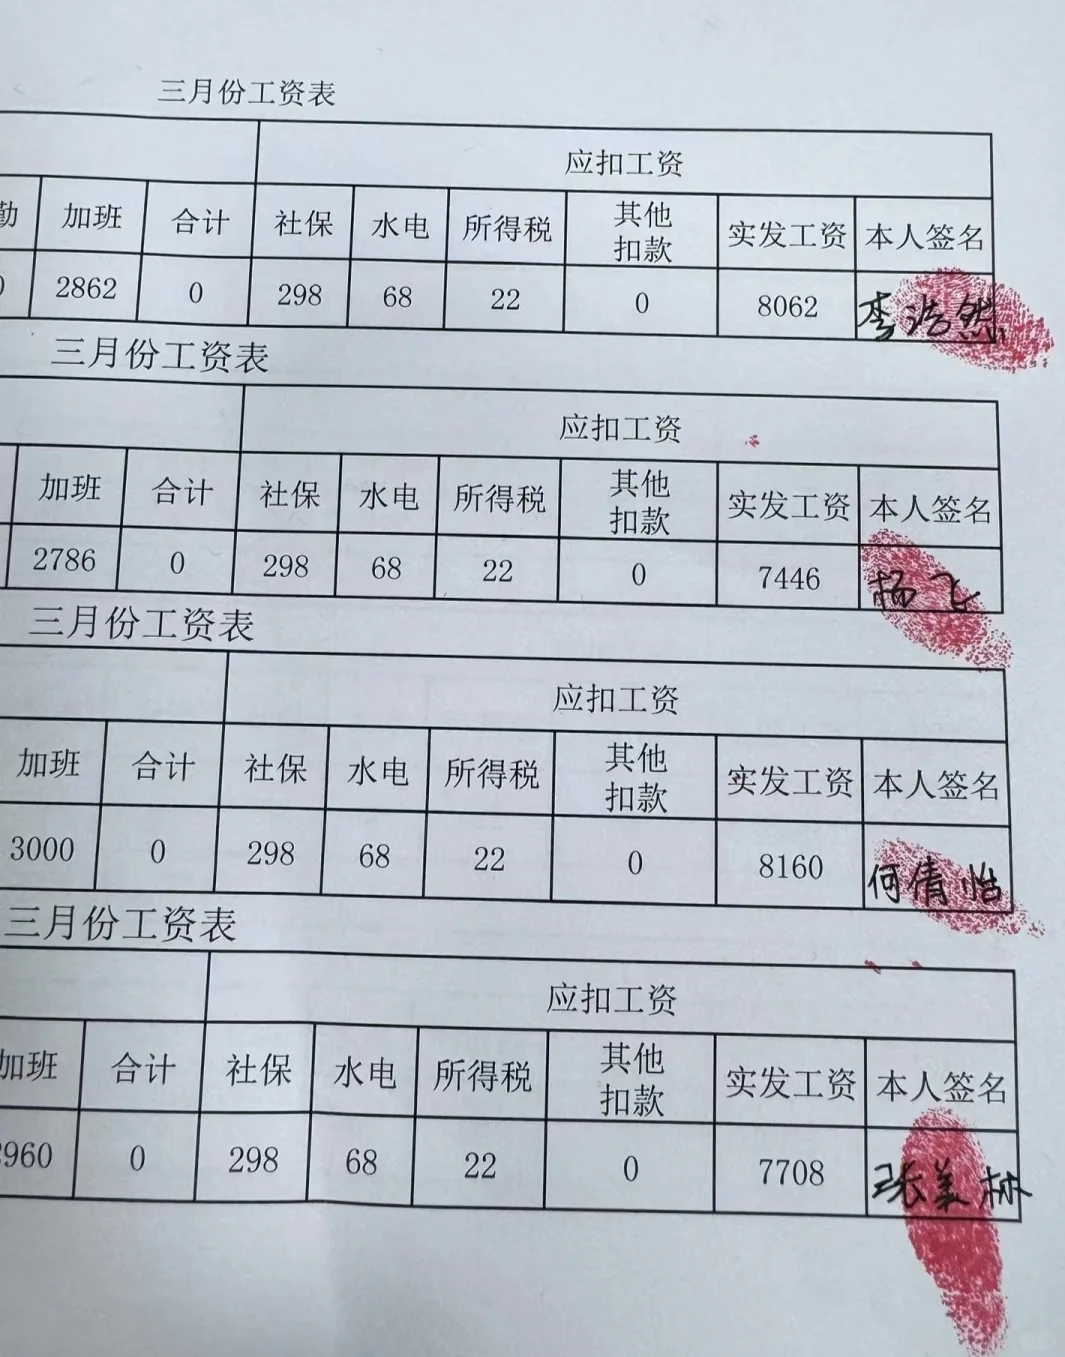 三月份工资表
应扣工资
勤 加班 合计 社保 水电 所得税 其他扣款 实发工资 本人签名
0 2862 0 298 68 22 0 8062 李浩然
三月份工资表
应扣工资
加班 合计 社保 水电 所得税 其他扣款 实发工资 本人签名
2786 0 298 68 22 0 7446 杨飞
三月份工资表
应扣工资
加班 合计 社保 水电 所得税 其他扣款 实发工资 本人签名
3000 0 298 68 22 0 8160 何倩怡
三月份工资表
应扣工资
加班 合计 社保 水电 所得税 其他扣款 实发工资 本人签名
2960 0 298 68 22 0 7708 张美林